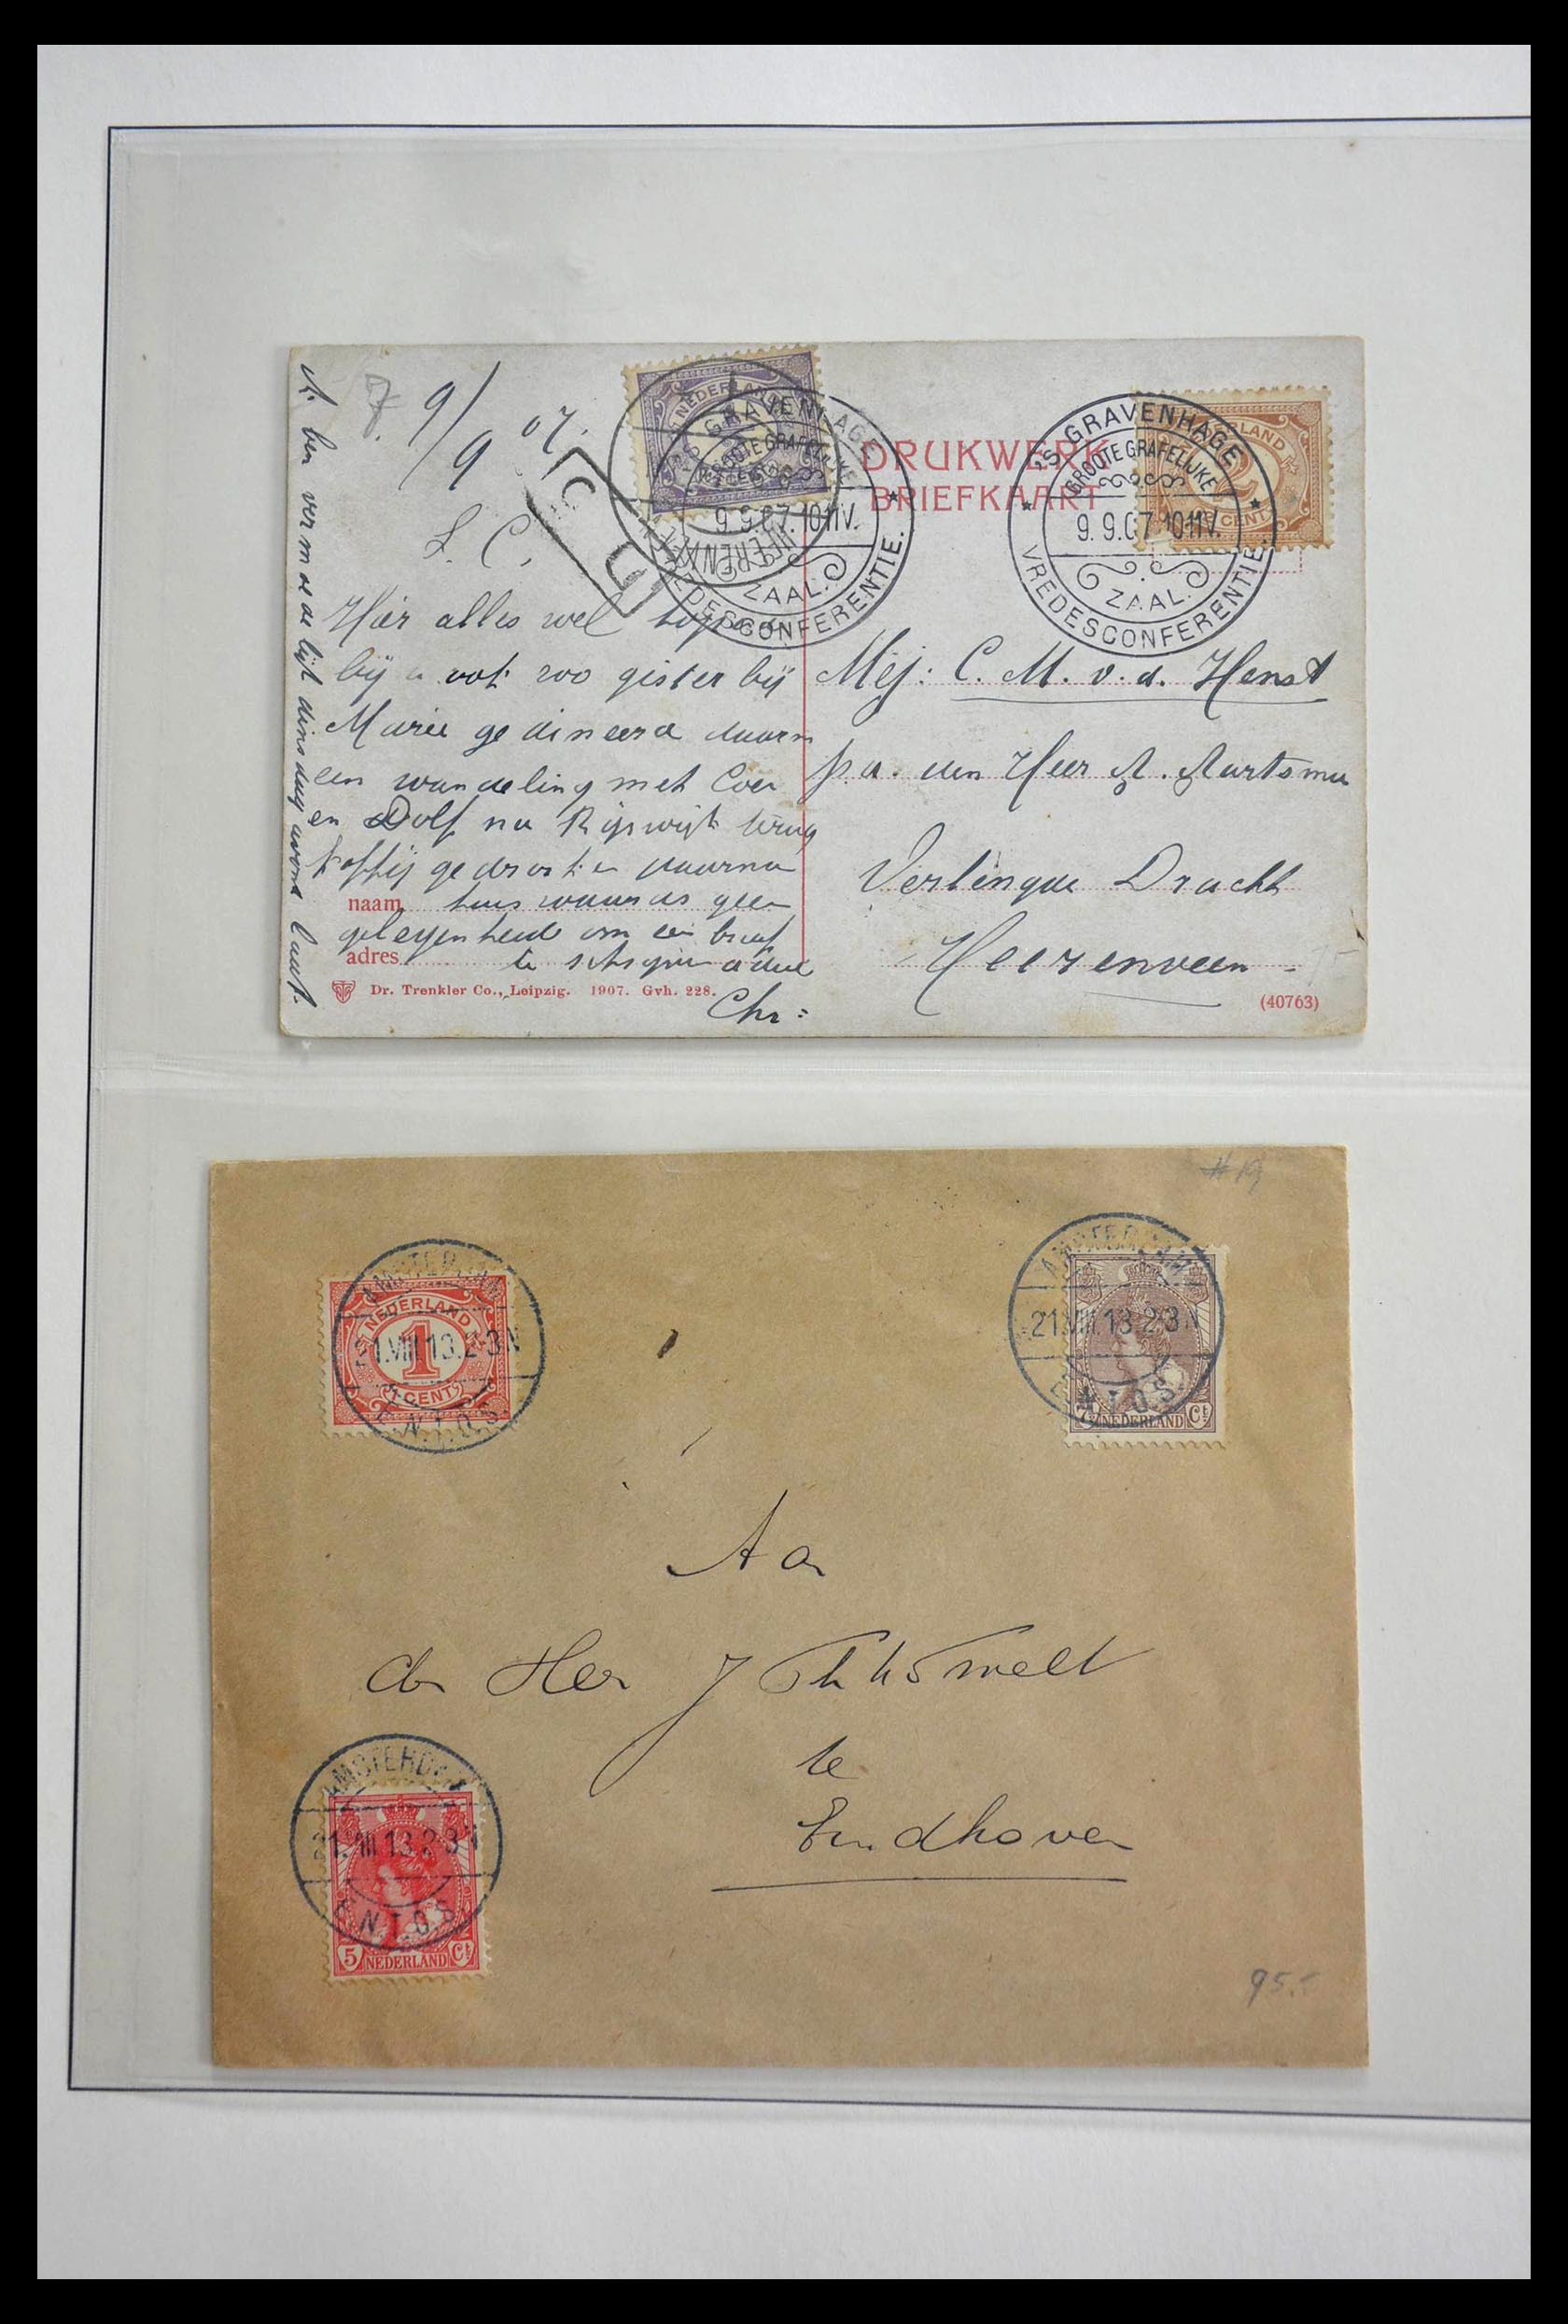 7. 9/9 07.
L. C.
Hier alles wel
bij u ook zoo gister bij
Marie gedineerd daarna
een wandeling met Coen
en Dolf na Rijswijk terug
koffij gedronken daarna
naam
huis geen
gelegenheid om een brief
adres
te
Chr:
Dr. Trenkler Co., Leipzig. 1907. Gvh. 228.
ben vermoedelijk dinsdag avond
NEDERLAND
'S GRAVENHAGE
GROOTE GRAFELIJKE
9.9.07.10-11V.
ZAAL.
VREDESCONFERENTIE.
DRUKWERK
BRIEFKAART
'S GRAVENHAGE
GROOTE GRAFELIJKE
9.9.07.10-11V.
ZAAL.
VREDESCONFERENTIE.
2
CENT
Mej: C. M. v. d. Henst
p.a. den Heer A. Aartsma
Verlengde Dracht
Heerenveen
(40763)
AMSTERDAM
21.VIII.13.2-3N
E.N.T.O.S.
NEDERLAND
1
1 CENT
AMSTERDAM
21.VIII.13.2-3N
E.N.T.O.S.
7½ NEDERLAND Ct
Aan
den Heer J
te
Eindhoven
AMSTERDAM
21.VIII.13.2-3N
E.N.T.O.S.
5 NEDERLAND Ct
95.-